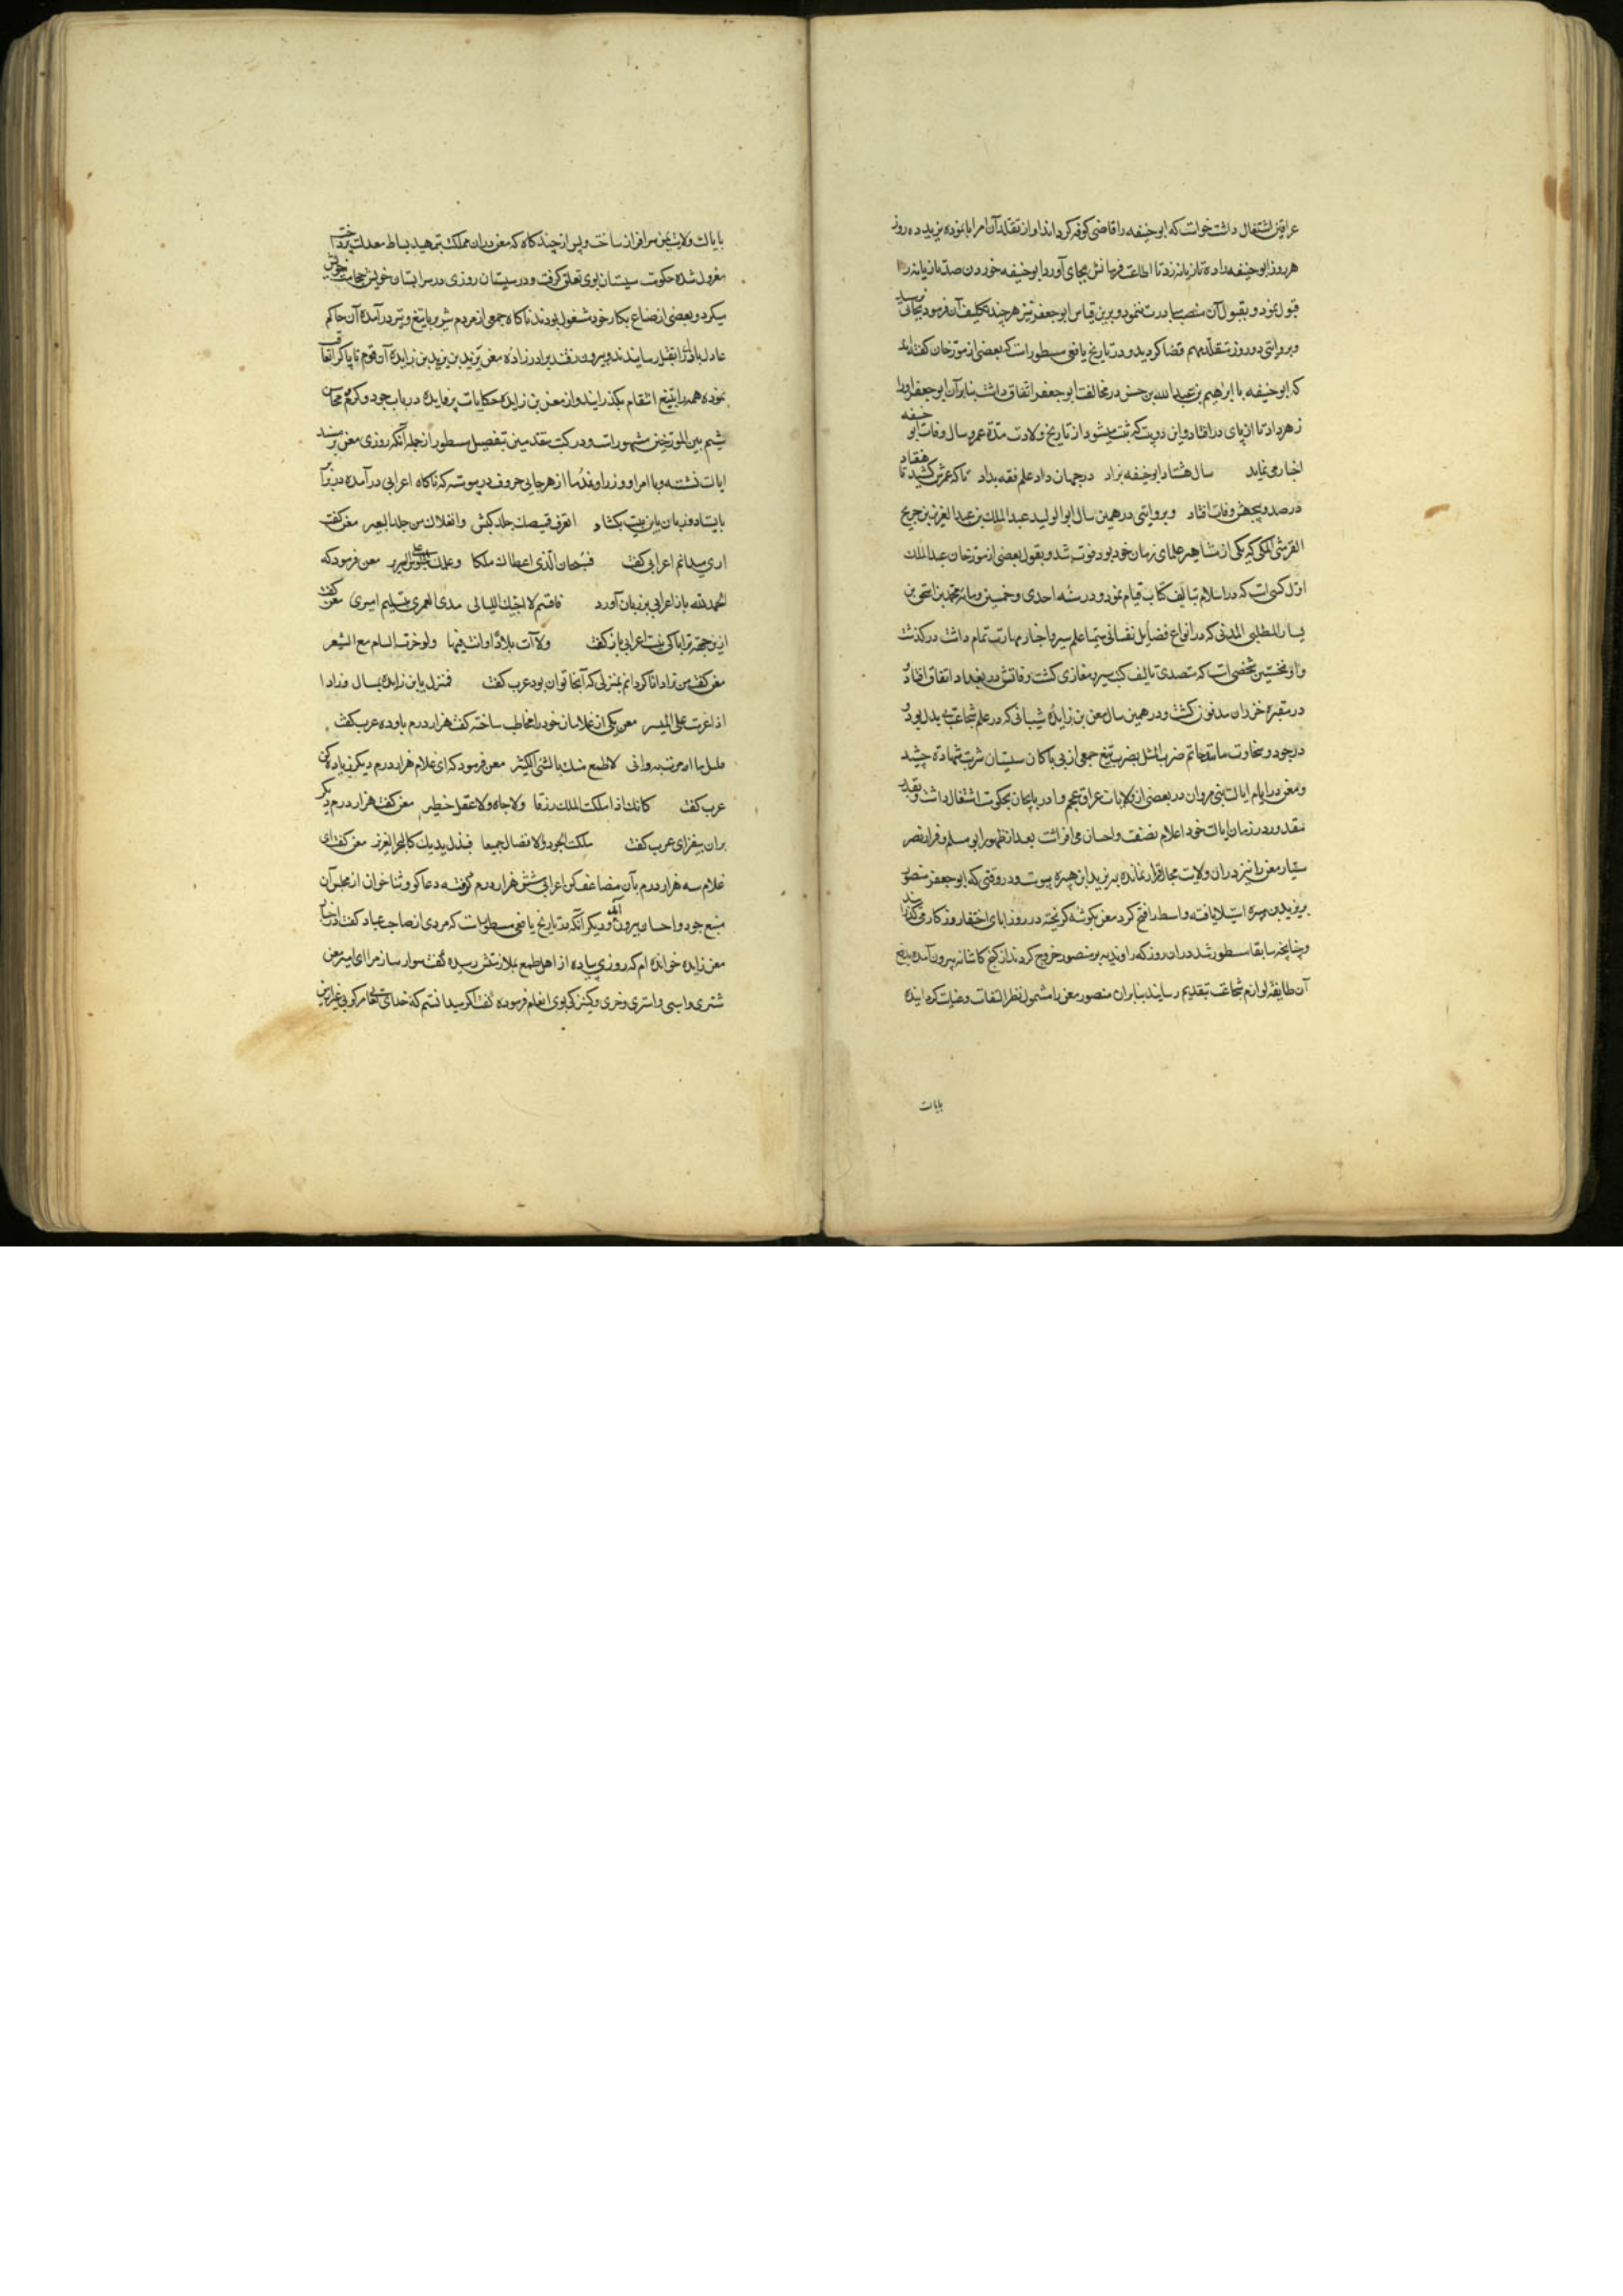 عراقین اشتغال داشت خواست که ابو حنیفه را قاضی کوفه گرداند او از تقلد آن امر ابا نموده یزید ده روز
هر روز ابو حنیفه را ده تازیانه زد تا اطاعت فرمانش بجای آورد ابو حنیفه خوردن صد تازیانه را
قبول نمود و بقبول آن منصب مبادرت ننمود و برین قیاس ابو جعفر نیز هر چند تکلیف آن فرمود بجائی نرسید
و بروایتی دو روز متقلد مهم قضا گردید و در تاریخ یافعی مسطور است که بعضی از مورخان گفته‌اند
که ابو حنیفه با ابرهیم بن عبد الله بن حسن در مخالفت ابو جعفر اتفاق داشت بنابر آن ابو جعفر او را
زهر داد تا از پای در افتاد و این دو بیت که ثبت میشود از تاریخ ولادت و مدة عمر و سال وفات ابو حنیفه
اخبار می نماید سال هشتاد ابو حنیفه بزاد در جهان داد علم فقه بداد تا که عمرش کشید تا هفتاد
در صد و پنجهش وفات افتاد و بروایتی در همین سال ابو الولید عبد الملک بن عبد العزیز بن جریح
القرشی المکی که یکی از مشاهیر علمای زمان خود بود فوت شد و بقول بعضی از مورخان عبد الملک
اول کسی است که در اسلام بتالیف کتاب قیام نمود و در سنه احدی و خمسین و مائه محمد بن اسحق بن
یسار المطلبی المدنی که در انواع فضایل نفسانی سیما علم سیر و اخبار مهارت تمام داشت در گذشت
و او نخستین شخصی است که متصدی تالیف کتب سیر و مغازی گشت وفاتش در بغداد اتفاق افتاد و
در مقبره خیزران مدفون گشت و در همین سال معن بن زایده شیبانی که در علم شجاعت بی بدل بود و
در جود و سخاوت مانند حاتم ضرب المثل بضرب تیغ جمعی از بی باکان سیستان شربت شهادة چشید
و معن در ایام ایالت بنی مروان در بعضی از ولایات عراق عجم و اذربایجان بحکومت اشتغال داشت و بقدر
مقدور در زمان ایالت خود اعلام نصفت و احسان می‌افراشت بعد از ظهور ابو مسلم و فرار نصر
سیار معن را نیز در ان ولایت مجال قرار نمانده به یزید ابن هبیره پیوست و در وقتی که ابو جعفر منصور
بر یزید بن هبیره استیلا یافته واسط را فتح کرد معن بگوشه گریخته در روز ابای اختفا روزگار می گذرانید
و چنانچه سابقا مسطور شد در ان روز که راوندیه بر منصور خروج کردند از کنج کاشانه بیرون آمده بدفع
آن طایفه لوازم شجاعت بتقدیم رسانید بنابر ان منصور معن را مشمول نظر التفات و عنایت گردانیده
بایالت
بایالت ولایت یمن سرافراز ساخت و پس از چند کاه که معن در ان مملکت بتمهید بساط معدلت پرداخت
معزول شده حکومت سیستان بوی تعلق گرفت و در سیستان روزی در سرابستان خویش حجامت
میکرد و بعضی از صناع بکار خود مشغول بودند ناکاه جمعی از مردم شریر با تیغ و تیر در آمده آن حاکم
عادل باذل را بقتل رسانیدند و بیرون رفتند برادر زاده معن یزید بن مزید بن زایده آن قوم ناپاک را تعاقب
نموده همه را بتیغ انتقام بگذرانید و از معن بن زایده حکایات پر فایده در باب جود و کرم و محاسن
شیم بین المورخین مشهور است و در کتب متقدمین بتفصیل مسطور از جمله آنکه روزی معن بر مسند
ایالت نشسته و با امرا و وزرا و ندما از هر جایی حروف در پیوسته که ناکاه اعرابی در آمده در برابر
بایستاد و زبان باین بیت بکشاد اتعرف قمیصك جلد كبش و انعلاك من جلد البعیر معن گفت
اری میدانم اعرابی گفت فسبحان الذی اعطاك ملكا و علمك الجلوس علی السریر معن فرمود که
الحمد لله باز اعرابی بر زبان آورد فاقسم لا احییك اللیالی مدی العمری بتسلیم امیری معن گفت
ازین جهة ترا باکی نیست اعرابی باز گفت ولا آت بلادا انت فیها ولو خرت السلام مع الشعر
معن گفت من ترا دانا گردانم بمنزلی که آنجا توان بود عرب گفت فمنزل یابن زایدة بمال و زادا
اذ اعزمت علی المیسر معن یکی از غلامان خود را مخاطب ساخته گفت هزار درم باو ده عرب گفت
قلیل ما امرت به وانی لا طمع منك بالشئ الکثیر معن فرمود که ای غلام هزار درم دیگر زیاده کن
عرب گفت کانك اذا ملکت الملك رزقا ولا جاه ولا عقل خطیر معن گفت هزار درم دیگر
بران بیفزای عرب گفت ملکت الجود والافضال جمیعا فبذل یدیك کالبحر الغزیر معن گفت ای
غلام سه هزار درم بآن مضاعف کن اعرابی شش هزار درم گرفته دعاگو و ثنا خوان از مجلس آن
منبع جود و احسان بیرون رفت و دیگر آنکه در تاریخ یافعی مسطور است که مردی از صاحب عباد گفت از
معن زایده خوانده ام که روزی پیاده از اهل طمع بملازمتش رسیده گفت سوار ساز مرا ای امیر معن
شتری و اسبی و استری و خری و کنیزکی بوی انعام فرموده گفت اگر میدانستم که خدای تعالی مرکوبی غیر ازین